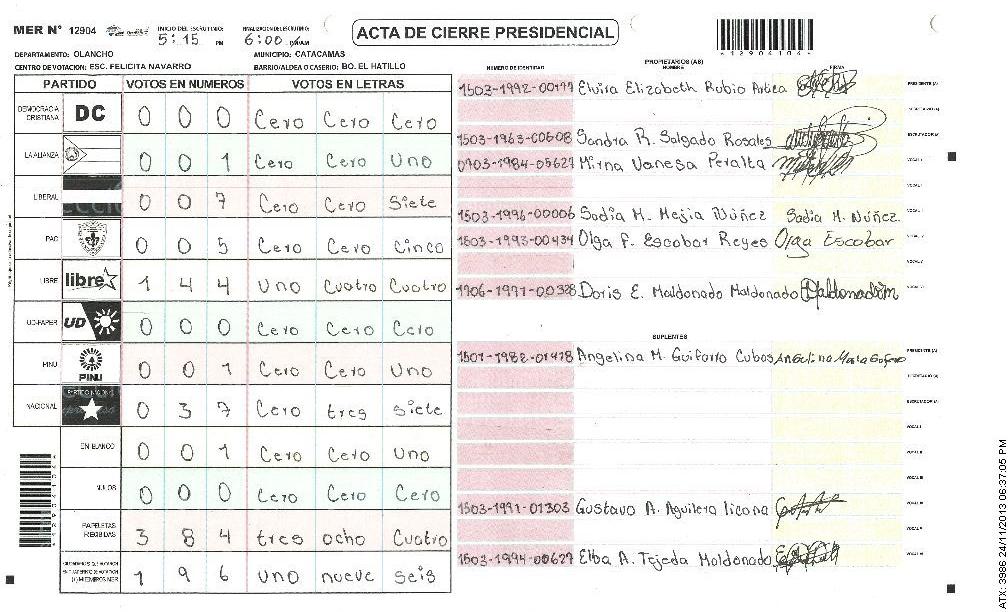 MER N° 12904 INICIO DEL ESCRUTINIO: 5:15 PM FINALIZACION DEL ESCRUTINIO: 6:00
ACTA DE CIERRE PRESIDENCIAL
12904104
DEPARTAMENTO: OLANCHO MUNICIPIO: CATACAMAS
CENTRO DE VOTACION: ESC. FELICITA NAVARRO BARRIO/ALDEA O CASERIO: BO. EL HATILLO
PARTIDO VOTOS EN NUMEROS VOTOS EN LETRAS
DEMOCRACIA CRISTIANA DC 0 0 0 Cero Cero Cero
LA ALIANZA 0 0 1 Cero Cero Uno
LIBERAL 0 0 7 Cero Cero Siete
PAC 0 0 5 Cero Cero Cinco
LIBRE libre 1 4 4 Uno Cuatro Cuatro
UD-FAPER UD 0 0 0 Cero Cero Cero
PINU PINU 0 0 1 Cero Cero Uno
NACIONAL 0 3 7 Cero tres Siete
EN BLANCO 0 0 1 Cero Cero Uno
NULOS 0 0 0 Cero Cero Cero
PAPELETAS RECIBIDAS 3 8 4 tres ocho Cuatro
1 9 6 Uno nueve Seis
NUMERO DE IDENTIDAD PROPIETARIOS (AS) NOMBRE FIRMA
Elvira Elizabeth Rubio PRESIDENTE (A)
SECRETARIO (A)
1503-1963-00608 Sandra R. Salgado Rosales ESCRUTADOR (A)
0703-1984-05627 Mirna Vanesa Peralta VOCAL I
1503-1996-00006 Sadia M. Mejia Núñez Sadia M. Núñez
1503-1993-00434 Olga F. Escobar Reyes Olga Escobar
Doris E. Maldonado Maldonado
SUPLENTES
Angelina M. Guifarro Cubas PRESIDENTE (A)
SECRETARIO (A)
ESCRUTADOR (A)
1503-1991-01303 Gustavo A. Aguilera licona
1503-1994-00627 Elba A. Tejeda Maldonado
ATX: 3986 24/11/2013 06:37:05 PM